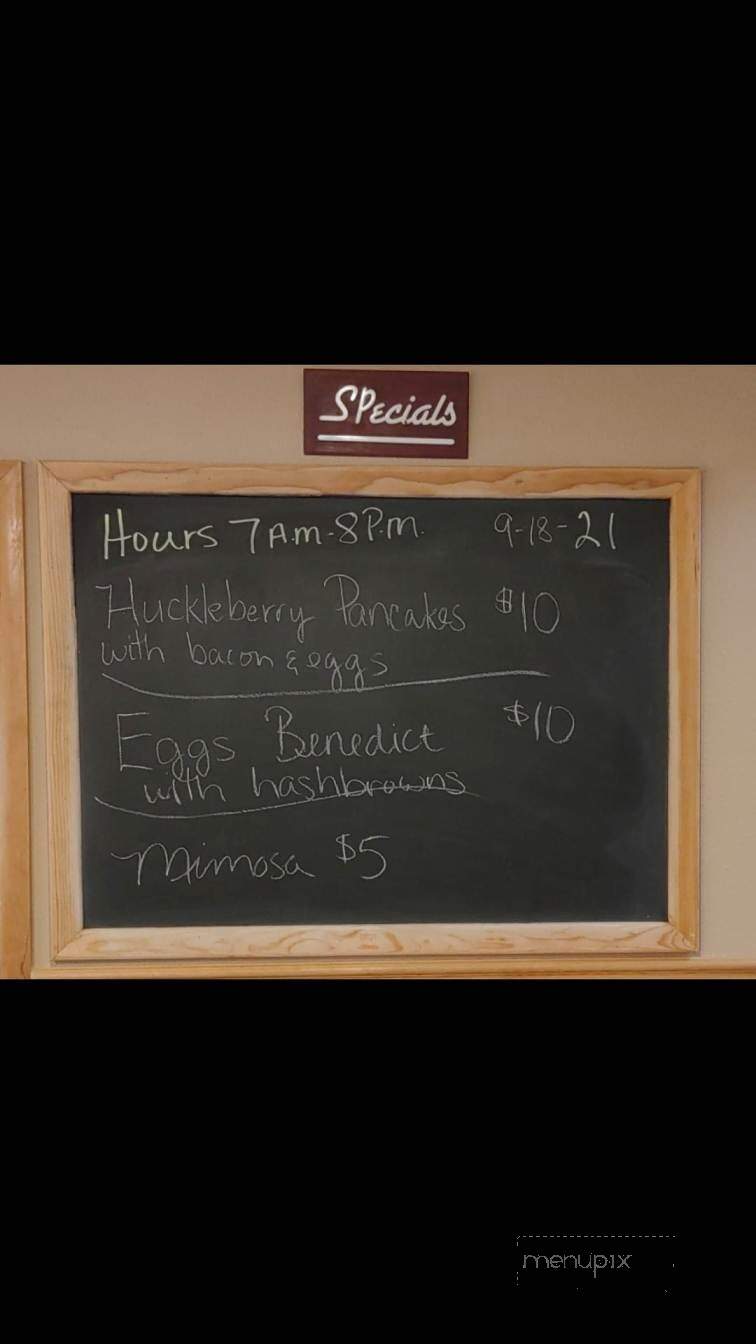 SPecials
Hours 7 A.M.-8 P.M. 9-18-21
Huckleberry Pancakes $10
with bacon & eggs
Eggs Benedict $10
with hashbrowns
Mimosa $5
menupix